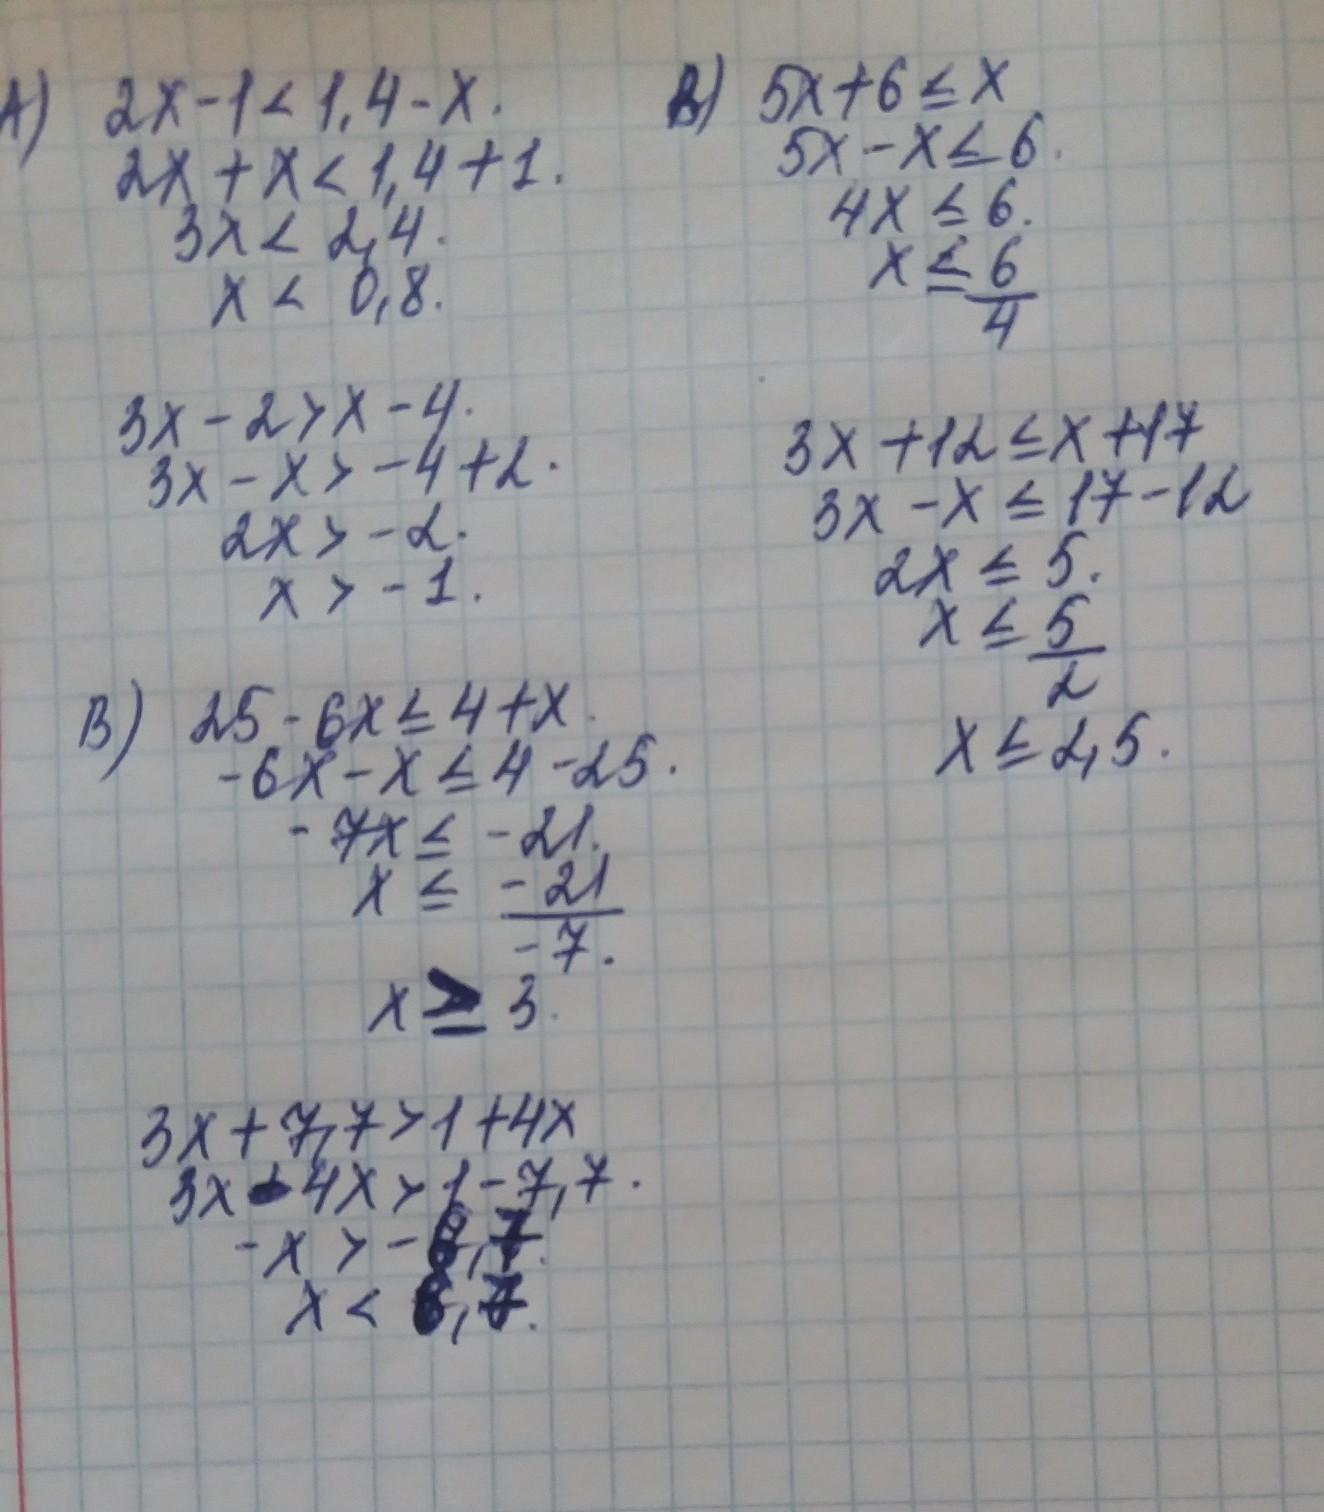 А) 2x - 1 < 1,4 - x.
2x + x < 1,4 + 1.
3x < 2,4.
x < 0,8.
3x - 2 > x - 4.
3x - x > -4 + 2.
2x > -2.
x > -1.
В) 25 - 6x ≤ 4 + x.
-6x - x ≤ 4 - 25.
-7x ≤ -21.
x ≤ -21
-7.
x ≥ 3.
3x + 7,7 > 1 + 4x
3x - 4x > 1 - 7,7.
-x > -6,7.
x < 6,7.
В) 5x + 6 ≤ x
5x - x ≤ 6.
4x ≤ 6.
x ≤ 6
4
3x + 12 ≤ x + 17
3x - x ≤ 17 - 12
2x ≤ 5.
x ≤ 5
2
x ≤ 2,5.